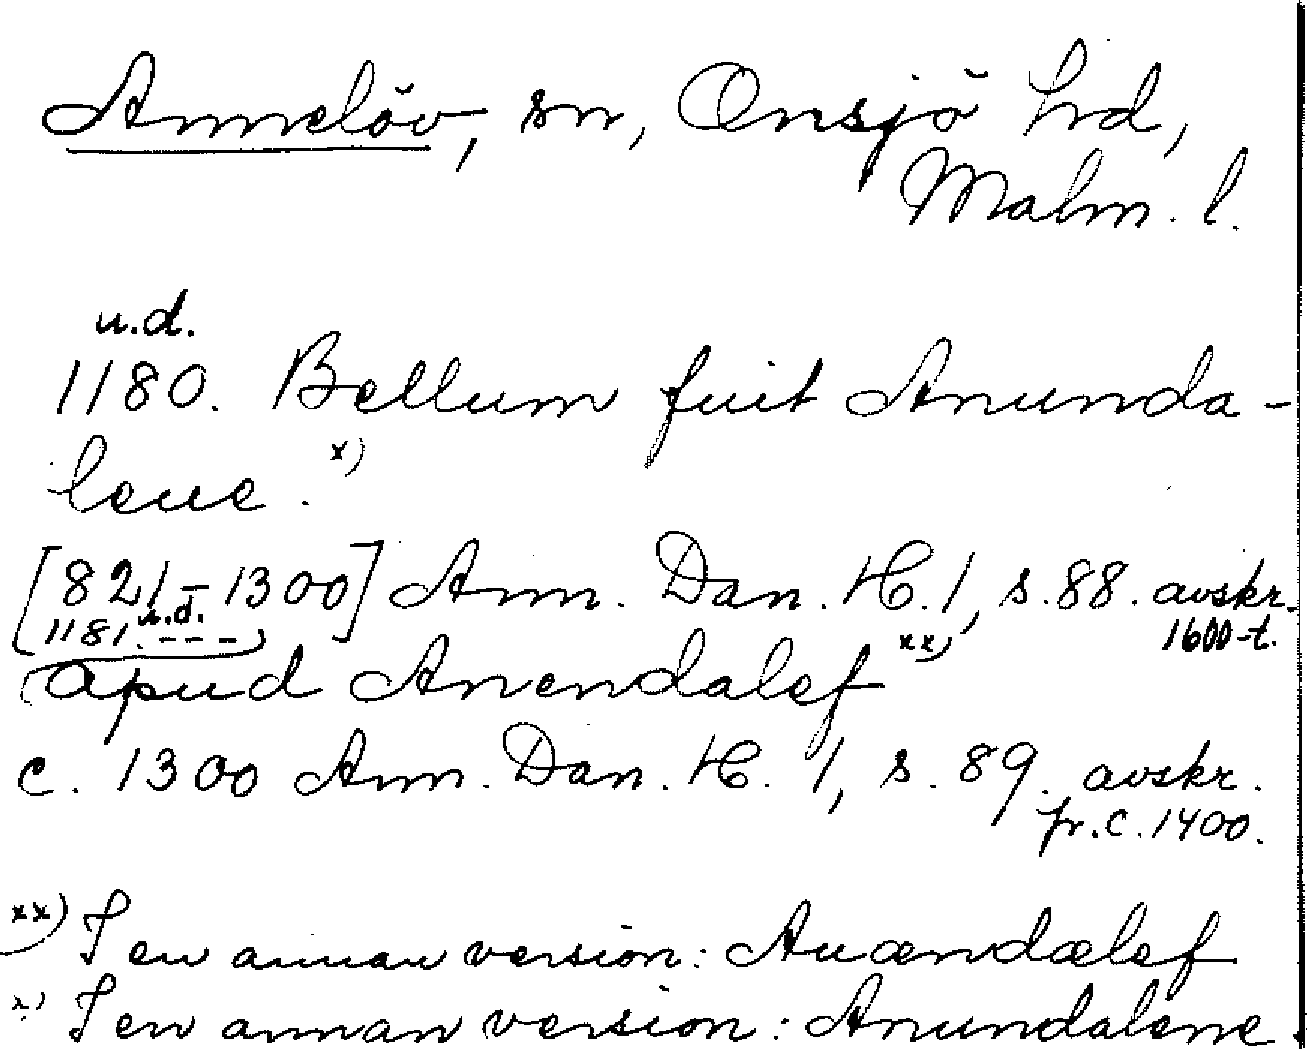 Annelöv, sn, Onsjö hd,
Malm. l.
u.d.
1180. Bellum fuit Anunda-
leue. x)
[821-1300] Ann. Dan. H. 1, s. 88. avskr.
1600-t.
1181. u.d. ---
apud Anendalef xx)
c. 1300 Ann. Dan. H. 1, s. 89. avskr.
fr. c. 1400.
xx) I en annan version: Auændælef
x) I en annan version: Anundalene